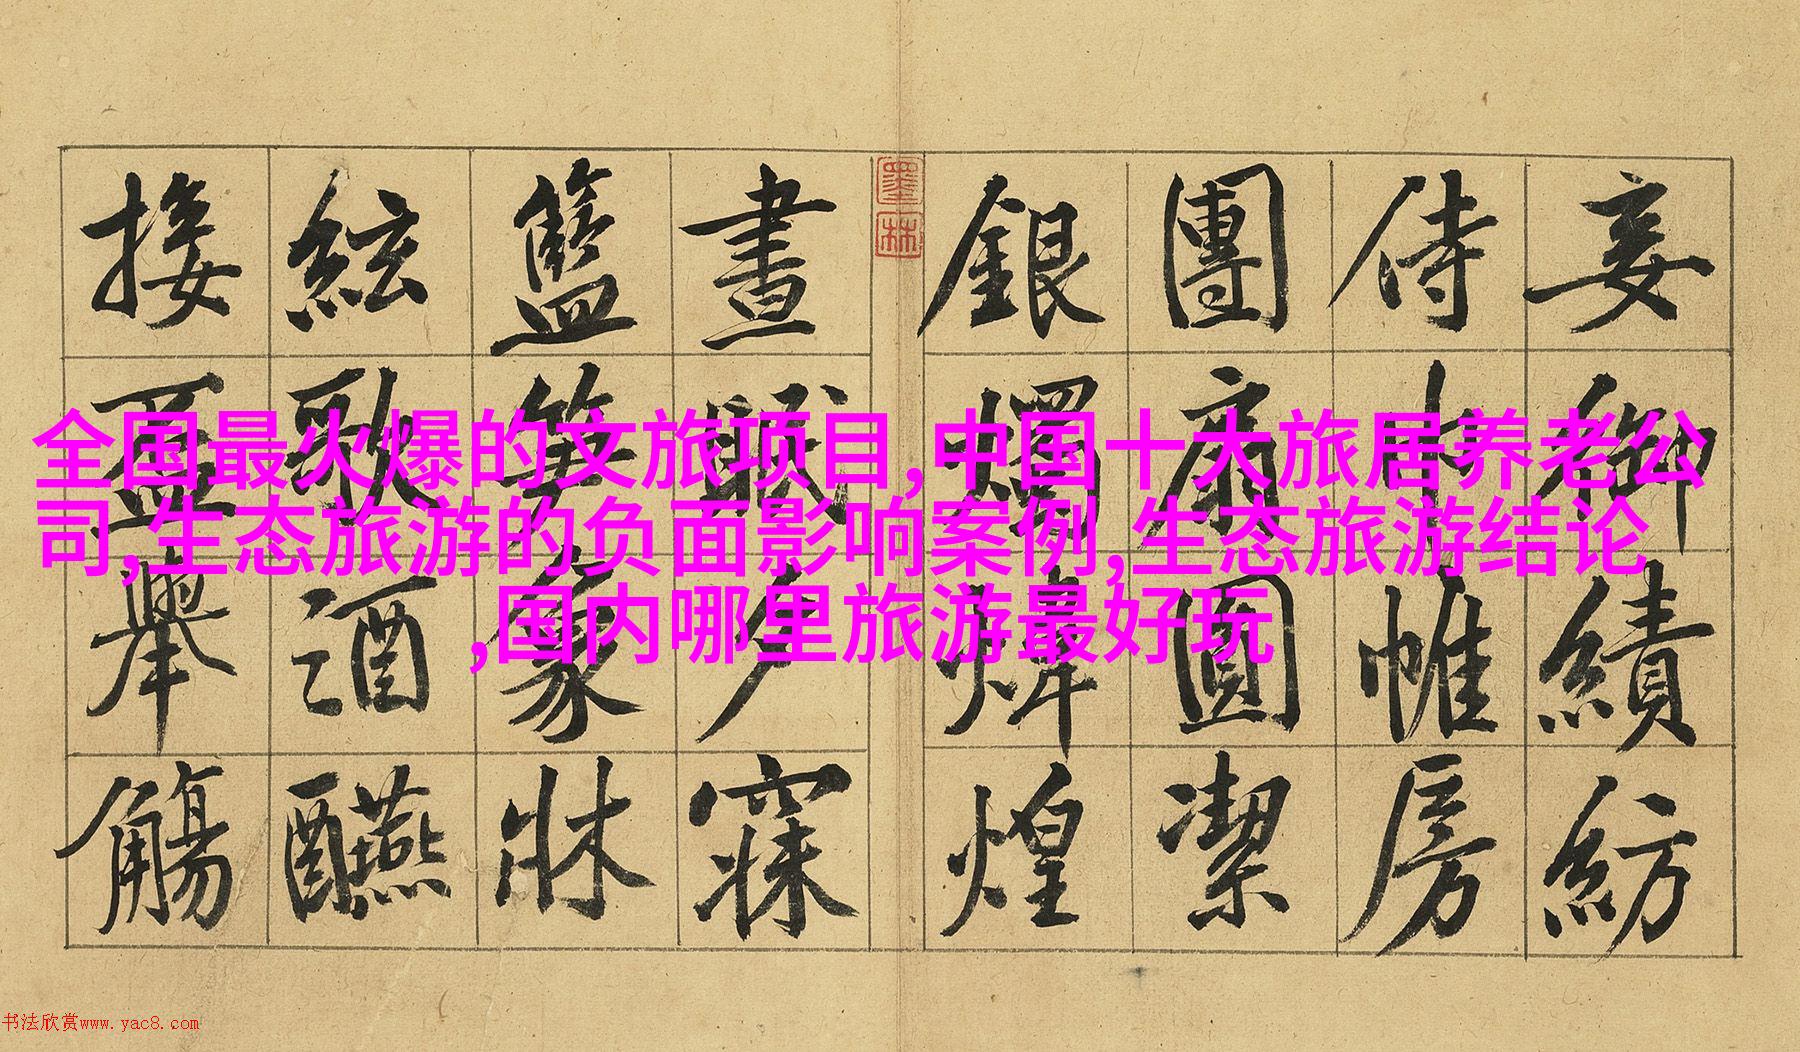 全国最火爆的文旅项目,中国十大旅居养老公
司,生态旅游的负面影响案例,生态旅游结论
,国内哪里旅游最好玩
妾御績紡
侍巾帷房
團扇圓潔
銀燭煒煌
墨林
晝眠夕寐
籃笋象牀
絃歌酒醼
接盃舉觴
书法欣赏www.yac8.com